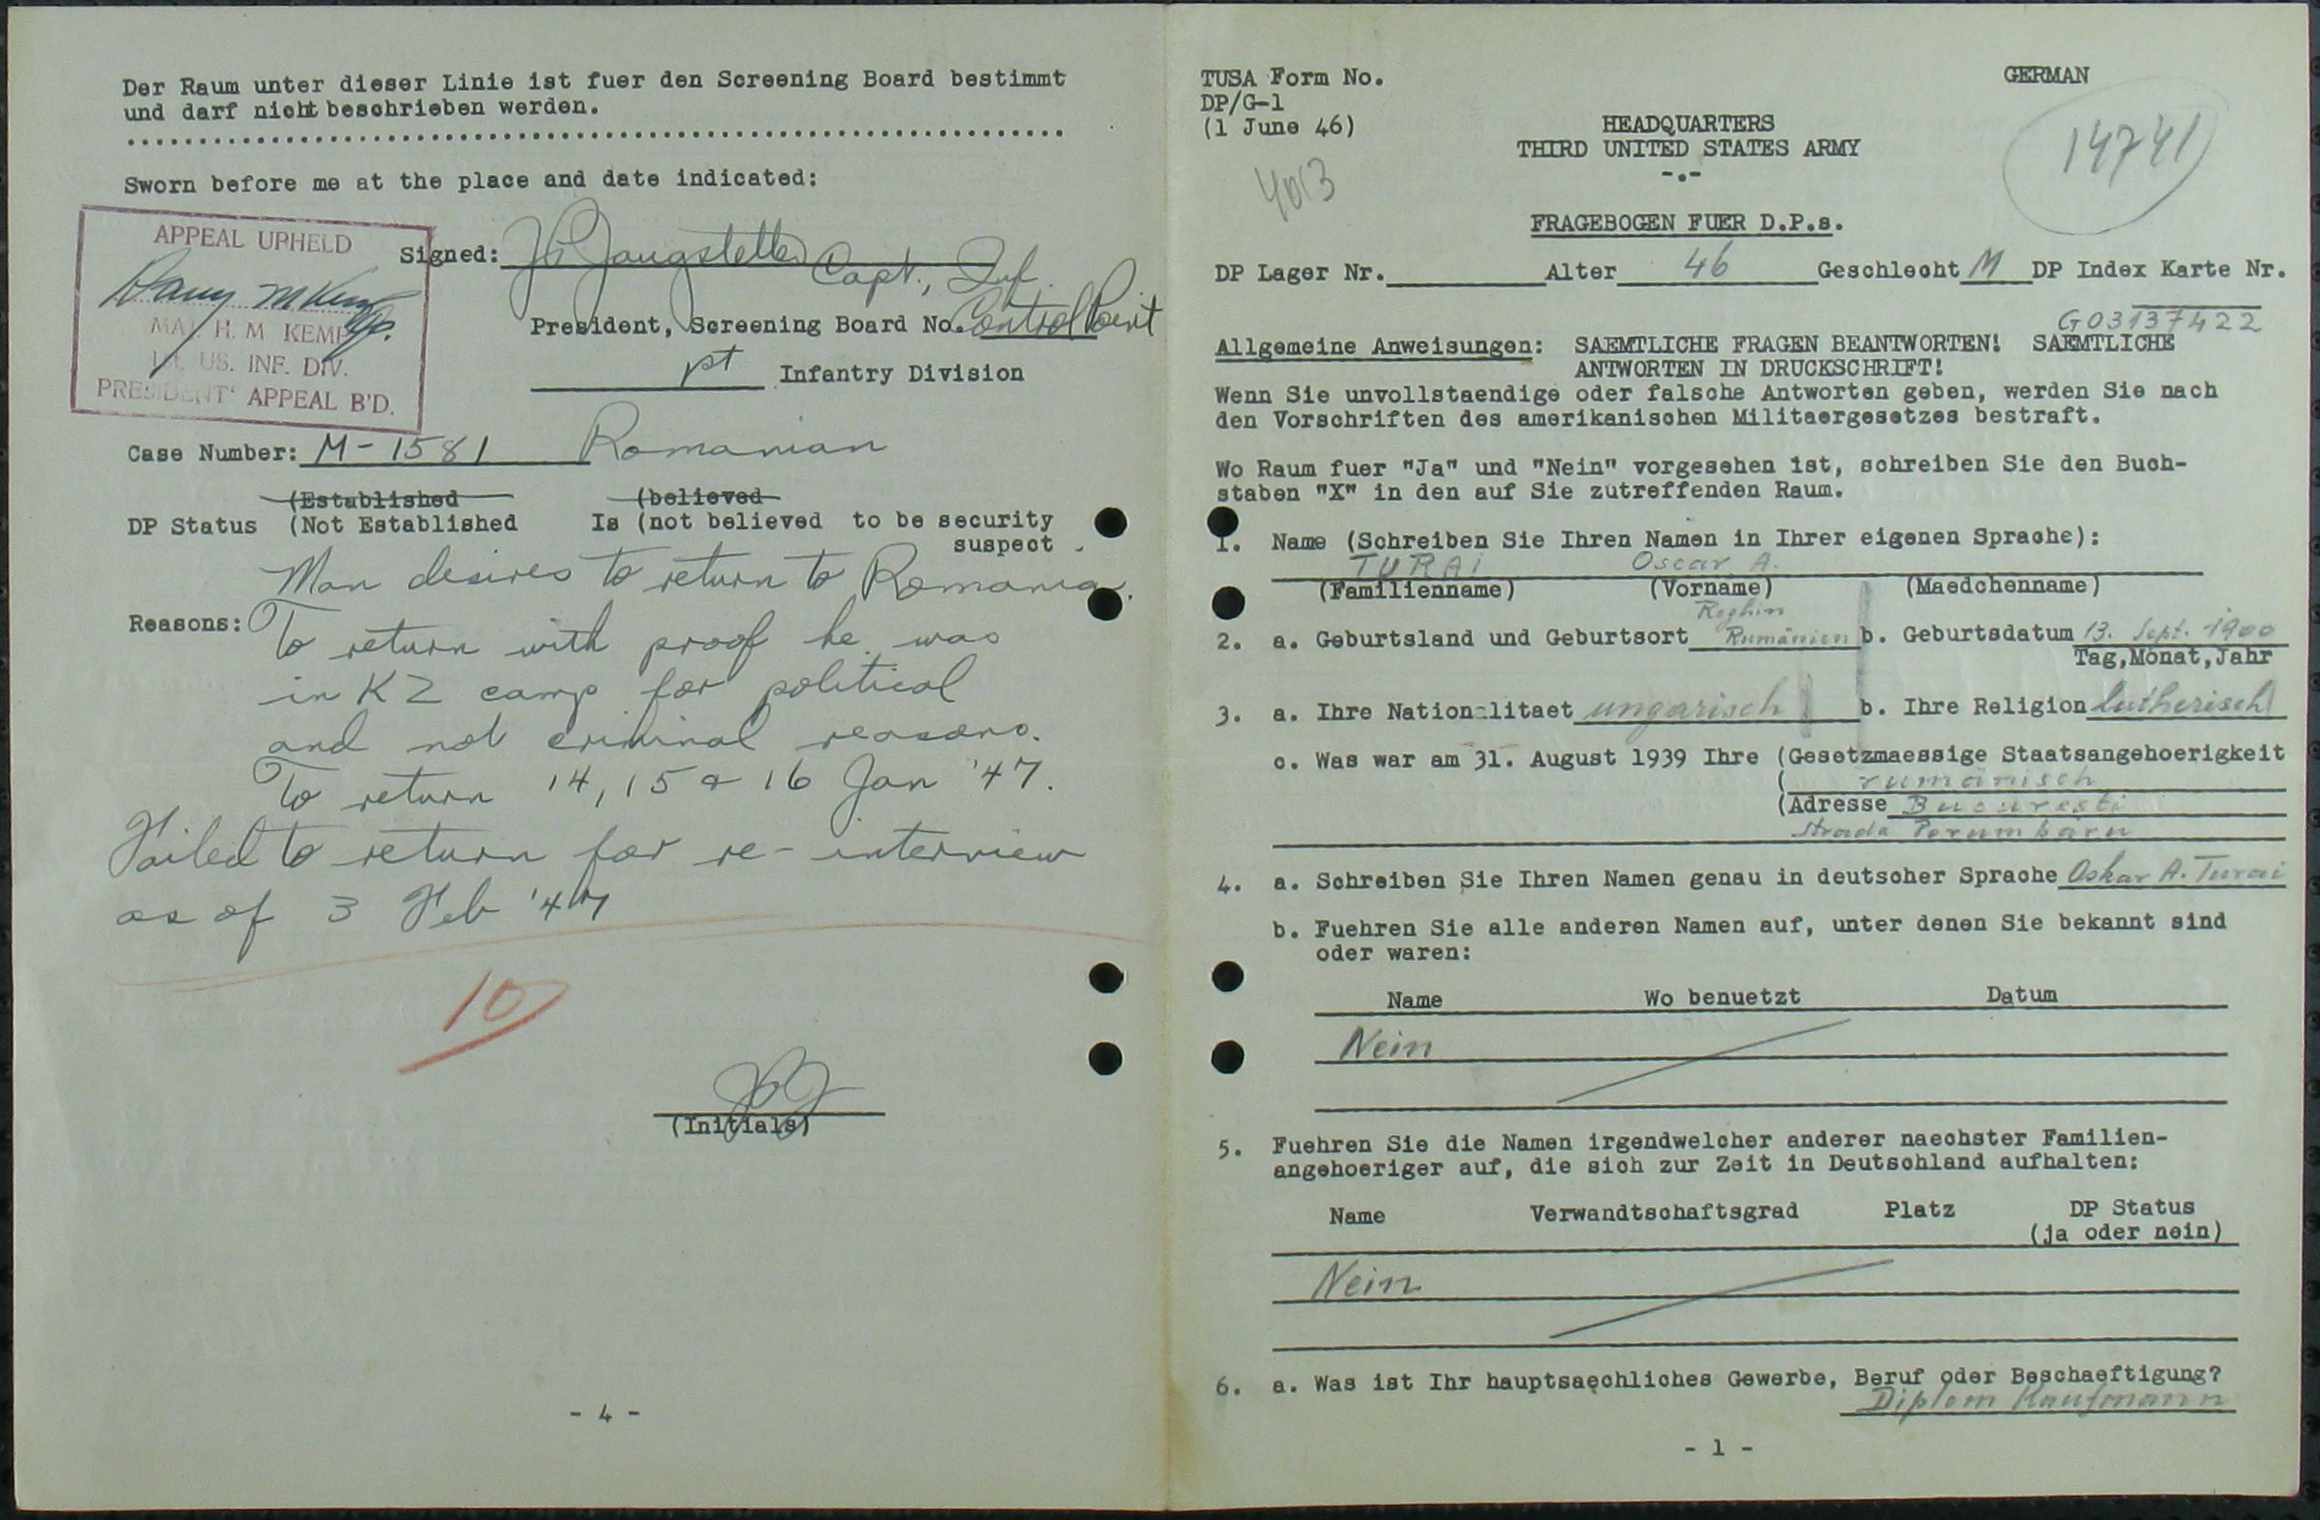 Der Raum unter dieser Linie ist fuer den Screening Board bestimmt
und darf nicht beschrieben werden.
Sworn before me at the place and date indicated:
APPEAL UPHELD
MAJ. H. M KEMP
US. INF. DIV.
PRESIDENT' APPEAL B'D.
Signed: Capt., Inf.
President, Screening Board No. Control Point
1st Infantry Division
Case Number: M-1581 Romanian
(Established (believed
DP Status (Not Established Is (not believed to be security
suspect
Man desires to return to Romania.
Reasons: To return with proof he was
in KZ camp for political
and not criminal reasons.
To return 14, 15 & 16 Jan '47.
Failed to return for re-interview
as of 3 Feb '47
10
(Initials)
- 4 -
TUSA Form No.
DP/G-1
(1 June 46)
GERMAN
14741
4013
HEADQUARTERS
THIRD UNITED STATES ARMY
-.-
FRAGEBOGEN FUER D.P.s.
DP Lager Nr. Alter 46 Geschlecht M DP Index Karte Nr.
G03137422
Allgemeine Anweisungen: SAEMTLICHE FRAGEN BEANTWORTEN! SAEMTLICHE
ANTWORTEN IN DRUCKSCHRIFT!
Wenn Sie unvollstaendige oder falsche Antworten geben, werden Sie nach
den Vorschriften des amerikanischen Militaergesetzes bestraft.
Wo Raum fuer "Ja" und "Nein" vorgesehen ist, schreiben Sie den Buch-
staben "X" in den auf Sie zutreffenden Raum.
1. Name (Schreiben Sie Ihren Namen in Ihrer eigenen Sprache):
TURAI Oscar A.
(Familienname) (Vorname) (Maedchenname)
Reghin
2. a. Geburtsland und Geburtsort Rumänien b. Geburtsdatum 13. Sept. 1900
Tag,Monat,Jahr
3. a. Ihre Nationalitaet ungarisch b. Ihre Religion lutherisch
c. Was war am 31. August 1939 Ihre (Gesetzmaessige Staatsangehoerigkeit
( rumänisch
(Adresse Bucuresti
Strada Porumbaru
4. a. Schreiben Sie Ihren Namen genau in deutscher Sprache Oskar A. Turai
b. Fuehren Sie alle anderen Namen auf, unter denen Sie bekannt sind
oder waren:
Name Wo benuetzt Datum
Nein
5. Fuehren Sie die Namen irgendwelcher anderer naechster Familien-
angehoeriger auf, die sich zur Zeit in Deutschland aufhalten:
Name Verwandtschaftsgrad Platz DP Status
(ja oder nein)
Nein
6. a. Was ist Ihr hauptsaechliches Gewerbe, Beruf oder Beschaeftigung?
Diplom Kaufmann
- 1 -